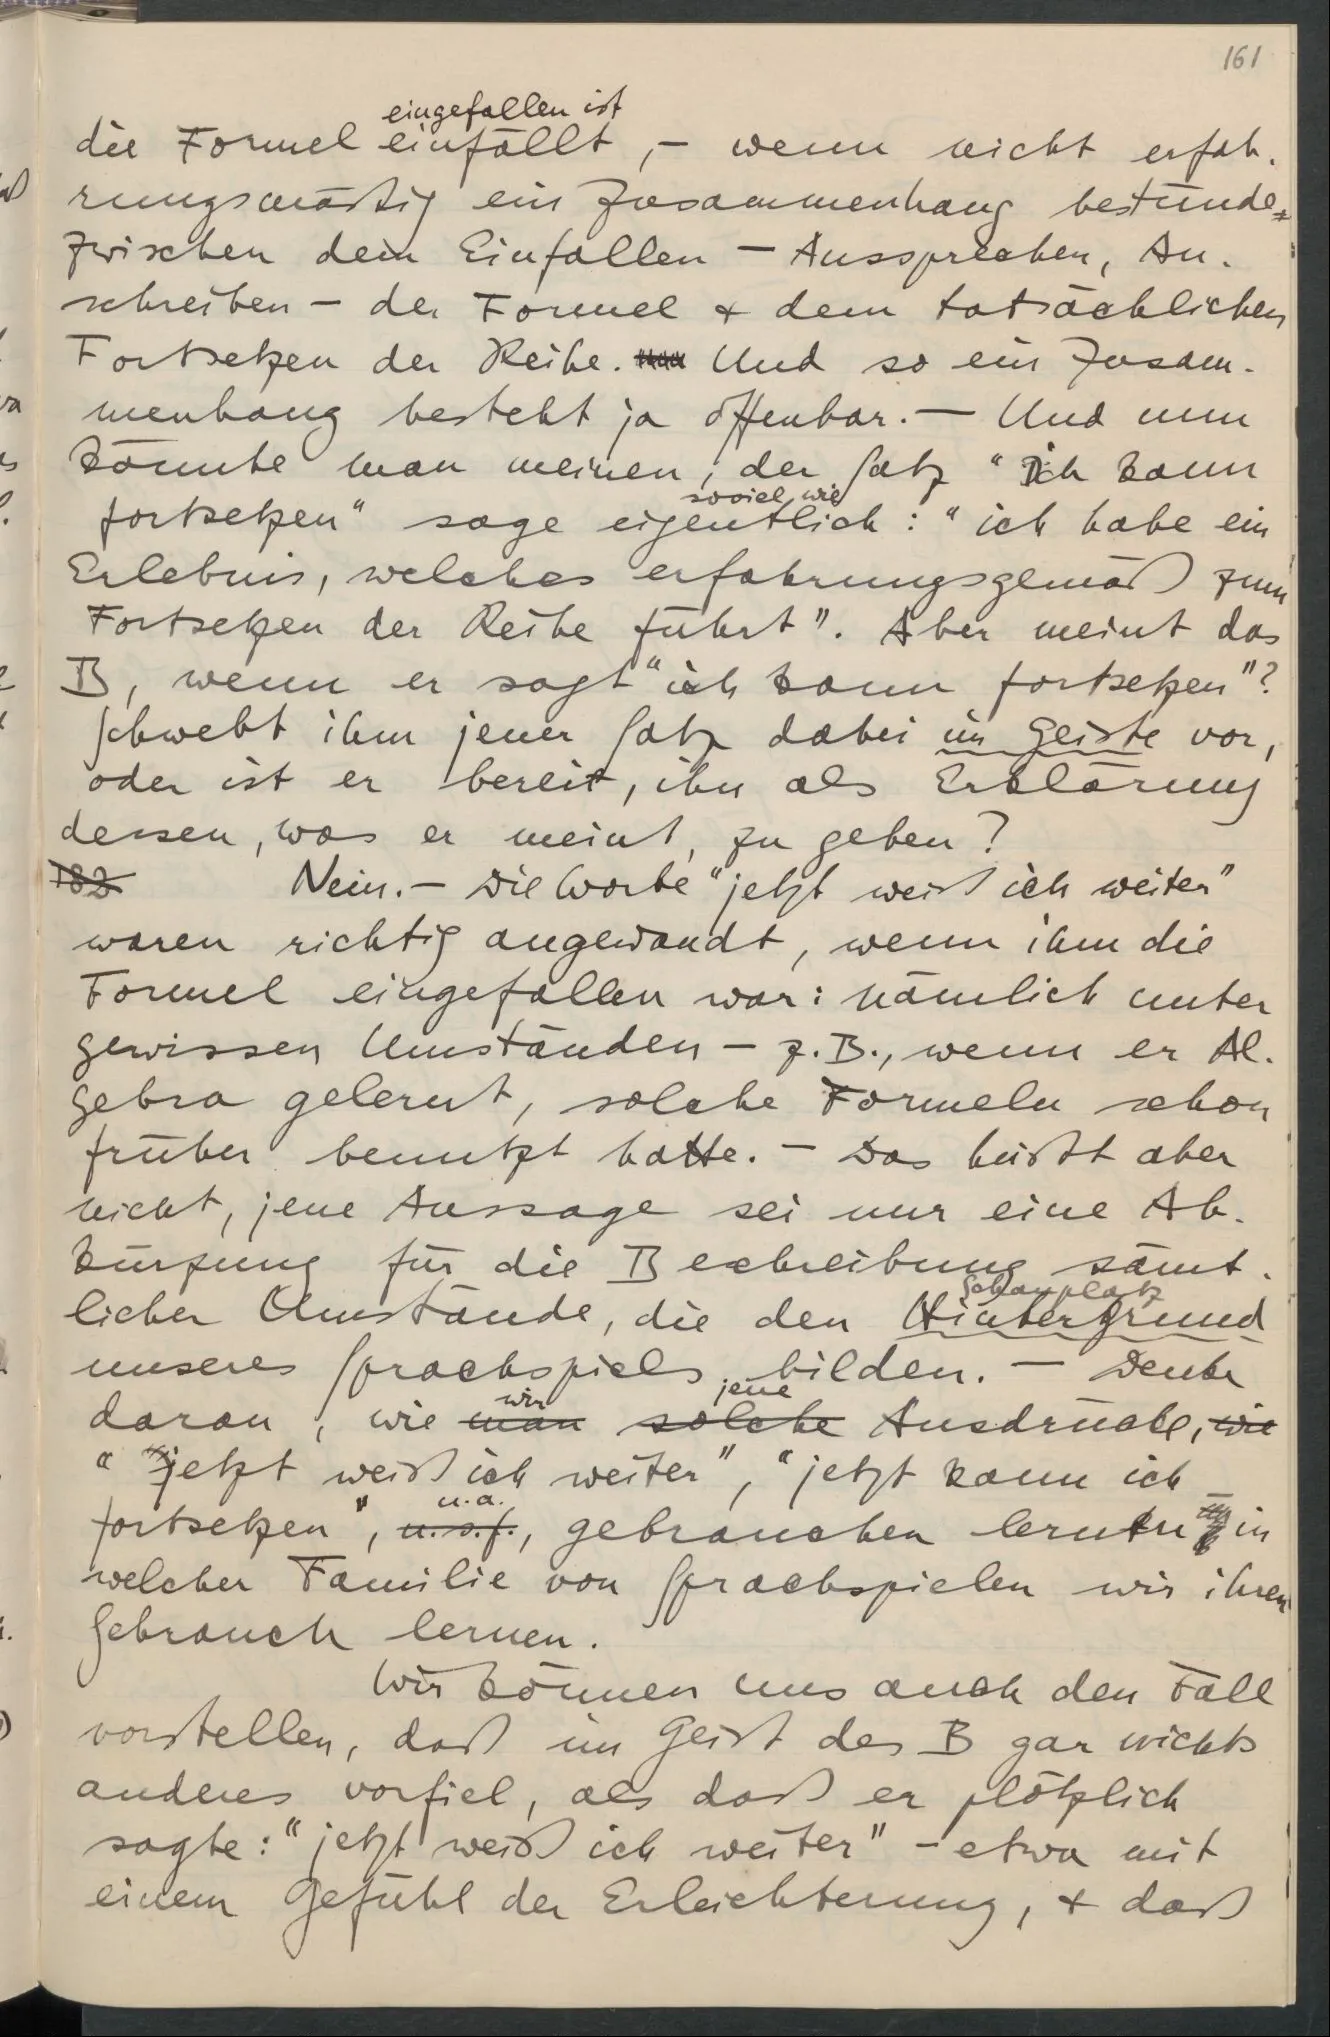 161
eingefallen ist
die Formel einfällt, – wenn nicht erfah-
rungsmäßig ein Zusammenhang bestünde
zwischen dem Einfallen – Aussprechen, An-
schreiben – der Formel & dem tatsächlichen
Fortsetzen der Reihe. Und so ein Zusam-
menhang besteht ja offenbar. – Und nun
könnte man meinen, der Satz "Ich kann
soviel wie
fortsetzen" sage eigentlich: "ich habe ein
Erlebnis, welches erfahrungsgemäß zum
Fortsetzen der Reihe führt". Aber meint das
B, wenn er sagt "ich kann fortsetzen"?
Schwebt ihm jener Satz dabei im Geiste vor,
oder ist er bereit, ihn als Erklärung
dessen, was er meint, zu geben?
183 Nein. – Die Worte "jetzt weiß ich weiter"
waren richtig angewandt, wenn ihm die
Formel eingefallen war: nämlich unter
gewissen Umständen – z.B., wenn er Al-
gebra gelernt, solche Formeln schon
früher benutzt hatte. – Das heißt aber
nicht, jene Aussage sei nur eine Ab-
kürzung für die Beschreibung sämt-
Schauplatz
licher Umstände, die den Hintergrund
unseres Sprachspiels bilden. – Denke
wir jene
daran, wie man solche Ausdrücke, wie
"jetzt weiß ich weiter", "jetzt kann ich
u.a.
fortsetzen", u.s.f., gebrauchen lernen in
welcher Familie von Sprachspielen wir ihren
Gebrauch lernen.
Wir können uns auch den Fall
vorstellen, daß im Geist des B gar nichts
anderes vorfiel, als daß er plötzlich
sagte: "jetzt weiß ich weiter" – etwa mit
einem Gefühl der Erleichterung, & daß